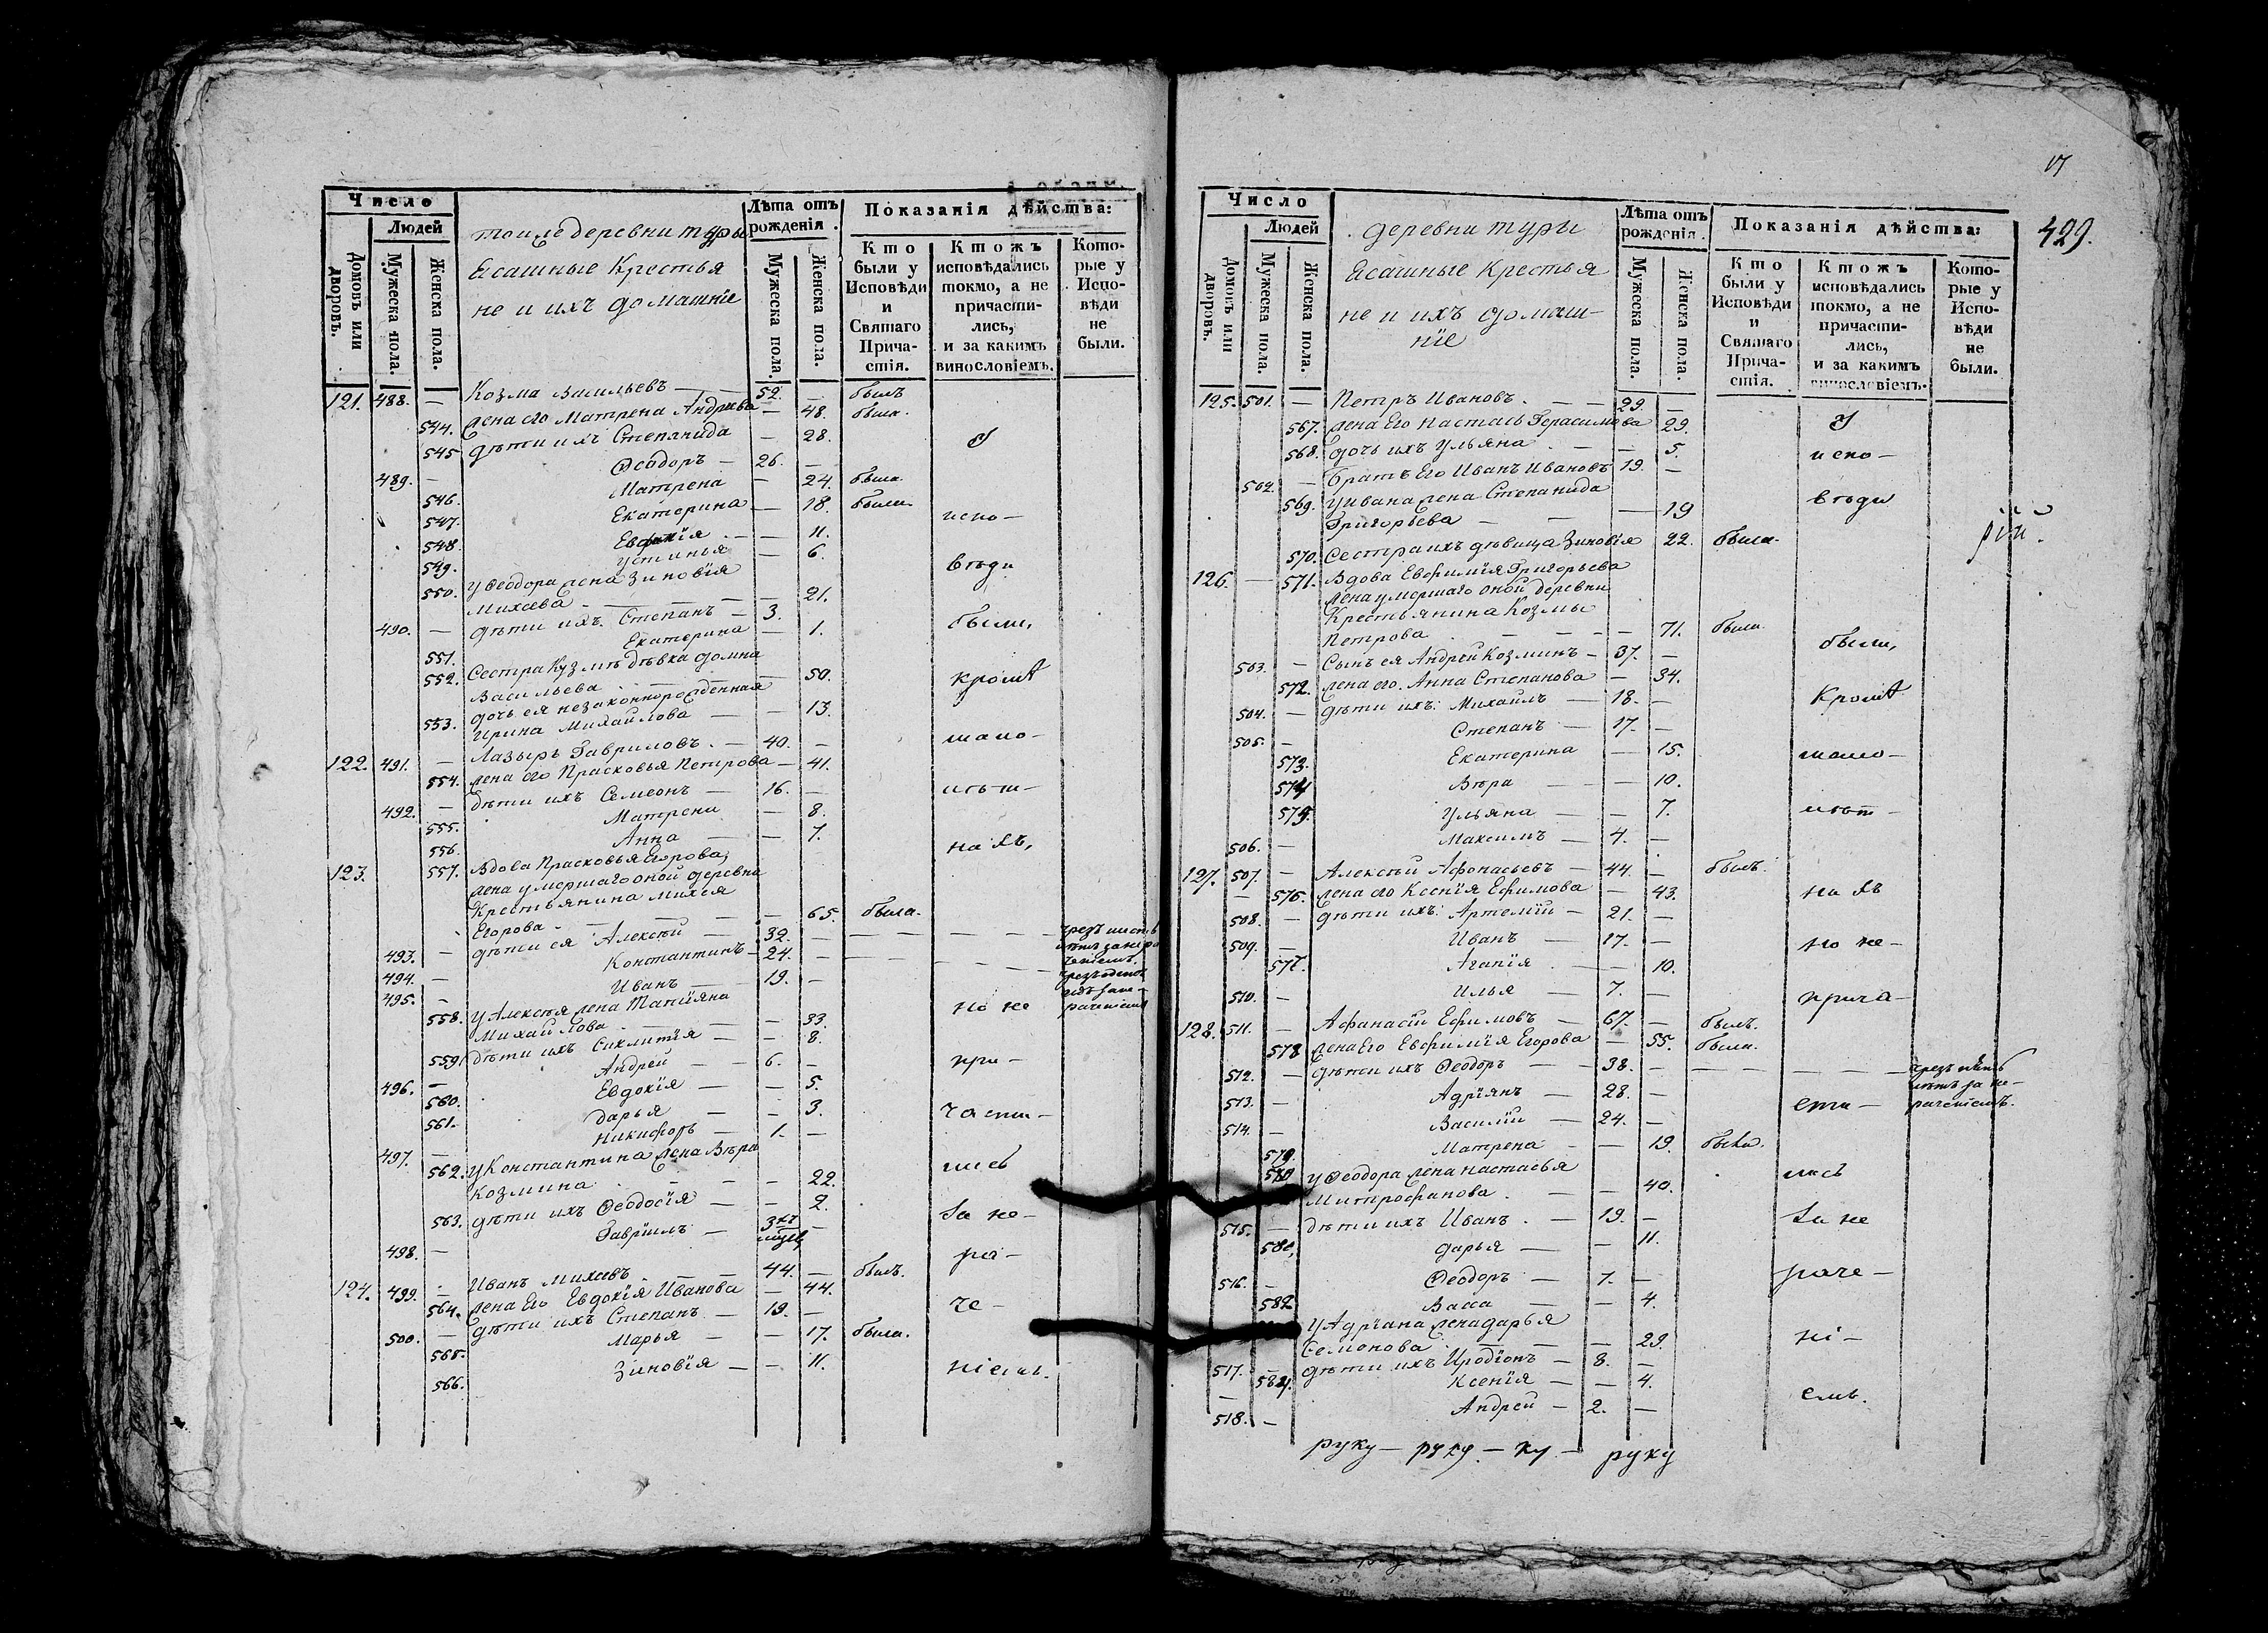 17
429.
Число
Людей
Домовъ или дворовъ.
Мужеска пола.
Женска пола.
тоиже деревни туры
Ясашные Крестья
не и ихъ домашніе
Лѣта отъ рожденія.
Мужеска пола.
Женска пола.
Показанія дѣйства:
Кто были у Исповѣди и Святаго Причастія.
Ктожъ исповѣдались токмо, а не причастились, и за какимъ винословіемъ.
Которые у Исповѣди не были.
121. 488. — Козма Васильевъ — 52. — былъ
544. жена его Матрена Андреева — 48. была.
545 дѣти ихъ Степанида — 28.
489. — Ѳеодоръ — 26. —
546. Матрена — 24. была
547. Екатерина — 18. была испо—
548. Евфимія — 11.
549. Устинья — 6. вѣди
550. у Ѳеодора жена Зиновія
Михеева — 21.
490. — дѣти ихъ Степанъ — 3. были,
551. Екатерина — 1.
552. Сестра Кузмѣ дѣвка домна
Васильева — 50. кромѣ
553. дочь ея незаконнорожденная
Ирина Михайлова — 13. токо—
122. 491. — Лазырь Гавриловъ. — 40. —
554. жена его Прасковья Петрова — 41.
492. — дѣти ихъ Семеонъ — 16. —
555. Матрена — 8.
556. Анна — 7. нахъ,
123. 557. Вдова Прасковья Егорова,
жена умершаго оной деревни
Крестьянина Михея
Егорова — 65. была.
493. — дѣти ея Алексѣй — 32. —
494. — Константинъ — 24. —
495. — Иванъ — 19. —
558. у Алексѣя жена Татіяна но не
Михайлова — 33.
559. дѣти ихъ Сиклитія — 8.
496. — Андрей — 6. — при—
560. Евдокія — 5.
561. Дарья — 3. части—
497. — Никифоръ — 1. —
562. у Константина жена Вѣра лись
Козмина — 22.
563. дѣти ихъ Ѳеодосія — 2. за не—
498. — Гавріилъ — 3хъ —
ра—
124. 499. — Иванъ Михеевъ — 44. — былъ.
564. жена Его Евдокія Иванова — 44. че—
500. — дѣти ихъ Степанъ — 19. —
565. Марья — 17. была.
566. Зиновія — 11. ніемъ.
Число
Людей
Домовъ или дворовъ.
Мужеска пола.
Женска пола.
деревни туры
Ясашные Крестья
не и ихъ домаш—
ніе
Лѣта отъ рожденія.
Мужеска пола.
Женска пола.
Показанія дѣйства:
Кто были у Исповѣди и Святаго Причастія.
Ктожъ исповѣдались токмо, а не причастились, и за какимъ винословіемъ.
Которые у Исповѣди не были.
125. 501. — Петръ Ивановъ. — 29. —
567. жена Его Настасья Герасимова 29.
568. дочь ихъ Ульяна — 5. испо—
502. — Братъ Его Иванъ Ивановъ 19. —
569. у Ивана жена Степанида вѣди
Григорьева — 19
570. Сестра ихъ дѣвица Зиновія 22. была.
126. — 571. Вдова Евфимія Григорьева
жена умершаго оной деревни
Крестьянина Козмы
Петрова — 71. была.
503. — Сынъ ея Андрей Козминъ — 37. — были,
572. жена его Анна Степанова — 34.
504. — дѣти ихъ: Михаилъ — 18. — Кромѣ
505. — Степанъ — 17. —
573. Екатерина — 15. токо—
574 Вѣра — 10.
575. Ульяна — 7.
506. — Максимъ — 4. —
127. 507. — Алексѣй Афонасьевъ — 44. — былъ.
576. жена его Ксенія Ефимова — 43. нахъ
508. — дѣти ихъ: Артемій — 21. —
509. — Иванъ — 17. — но не—
577. Агапія — 10.
510. — Илья — 7. — прича—
128. 511. — Афанасій Ефимовъ — 67. — былъ.
578 жена Его Евфимія Егорова — 55. была.
512. — дѣти ихъ Ѳеодоръ — 38. —
513. — Адріянъ — 28. — сти—
514. — Василій — 24. —
579. Матрена — 19. была.
580 у Ѳеодора жена Настасья лись
Митрофанова. — 40.
515. — дѣти ихъ Иванъ. — 19. — за не
581. Дарья — 11.
516. — Ѳеодоръ — 7. — раче—
582 Васса — 4.
у Адріана жена Дарья
Семенова — 29. ні—
517. — дѣти ихъ Иродіонъ — 8. —
584. Ксенія — 4. емъ.
518. — Андрей — 2. —
руку — руку — ку — руку